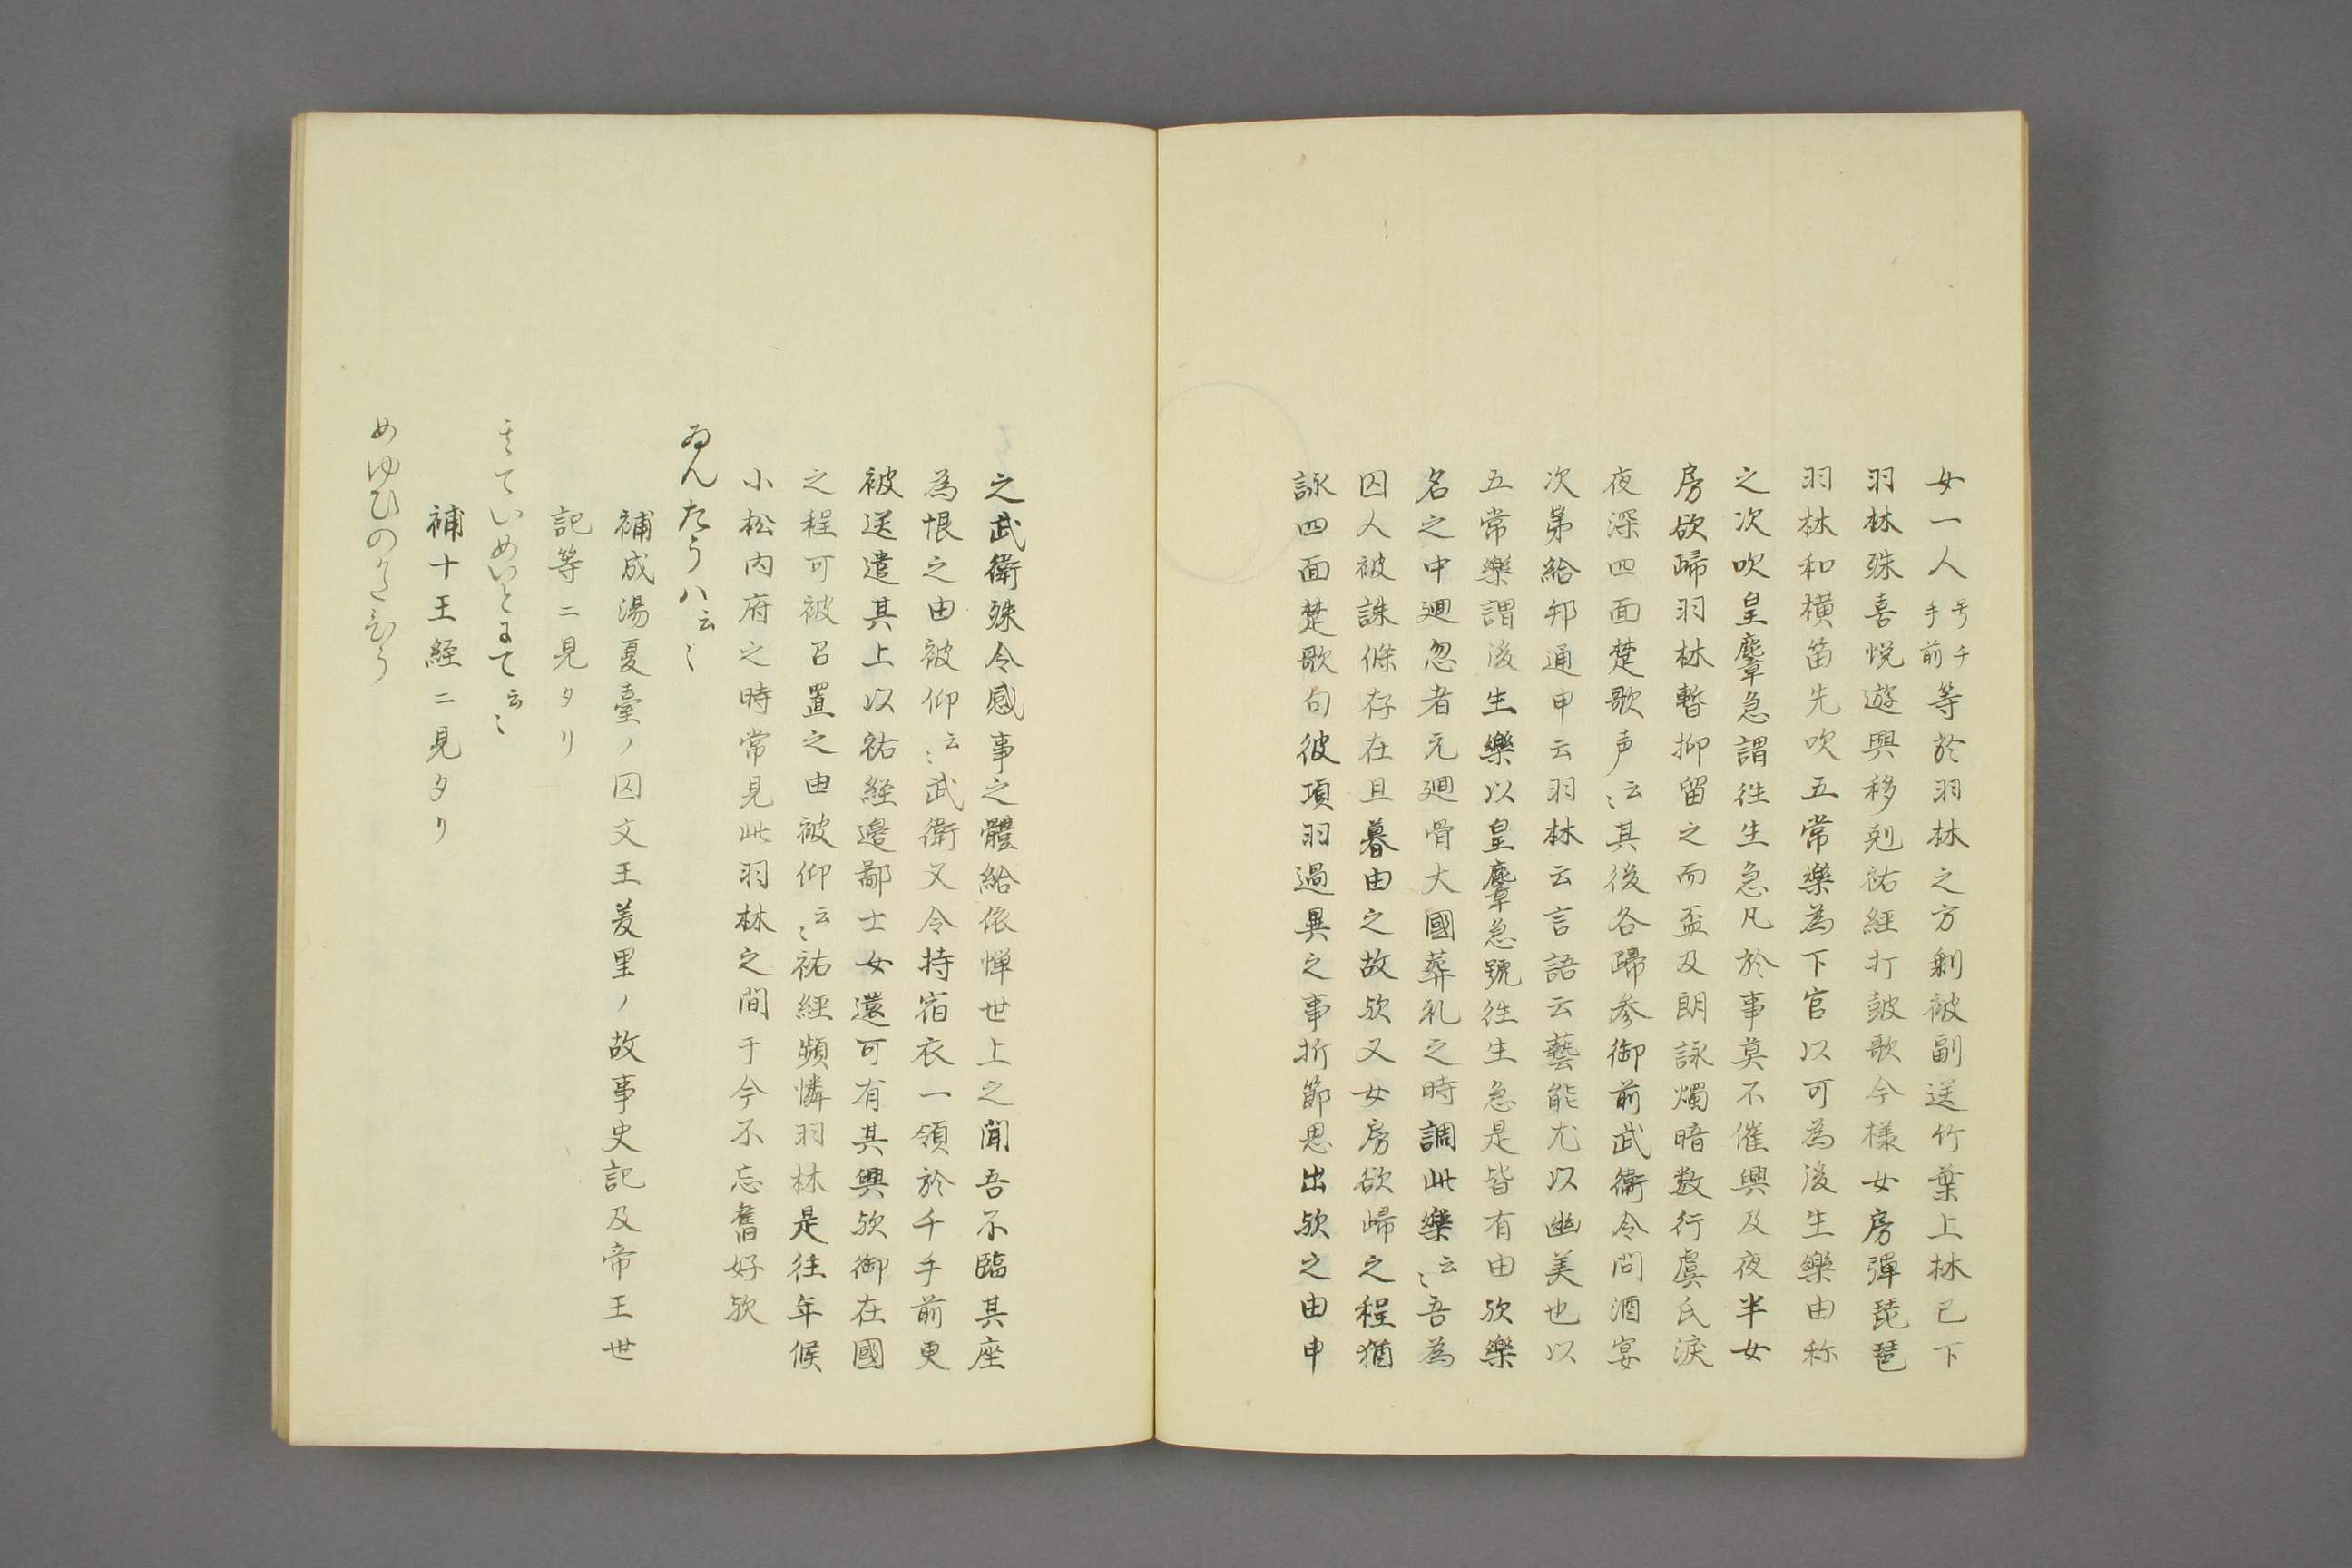 女一人号千手前等於羽林之方剰被副送竹葉上林已下
羽林殊喜悦遊興移剋祐經打皷歌今様女房彈琵琶
羽林和横笛先吹五常樂為下官以可為後生樂由称
之次吹皇麞急謂往生急凡於事莫不催興及夜半女
房欲歸羽林暫抑留之而盃及朗詠燭暗数行虞氏涙
夜深四面楚歌声云〻其後各歸参御前武衞令問酒宴
次第給邦通申云羽林云言語云藝能尤以幽美也以
五常樂謂後生樂以皇麞急號往生急是皆有由欤樂
名之中廻忽者元廻骨大國葬礼之時調此樂云〻吾為
囚人被誅條存在旦暮由之故欤又女房欲歸之程猶
詠四面楚歌句彼項羽過異之事折節思出欤之由申
之武衛殊令感事之體給依憚世上之聞吾不臨其座
為恨之由被仰云〻武衛又令持宿衣一領於千手前更
被送遣其上以祐経邉鄙士女還可有其興欤御在國
之程可被召置之由被仰云〻祐經頻憐羽林是往年候
小松内府之時常見此羽林之間于今不忘舊好欤
ゐんたうハ云〻
補成湯夏臺ノ囚文王羑里ノ故事史記及帝王世
記等ニ見タリ
きていめいとまて云〻
補十王経ニ見タリ
めゆひの